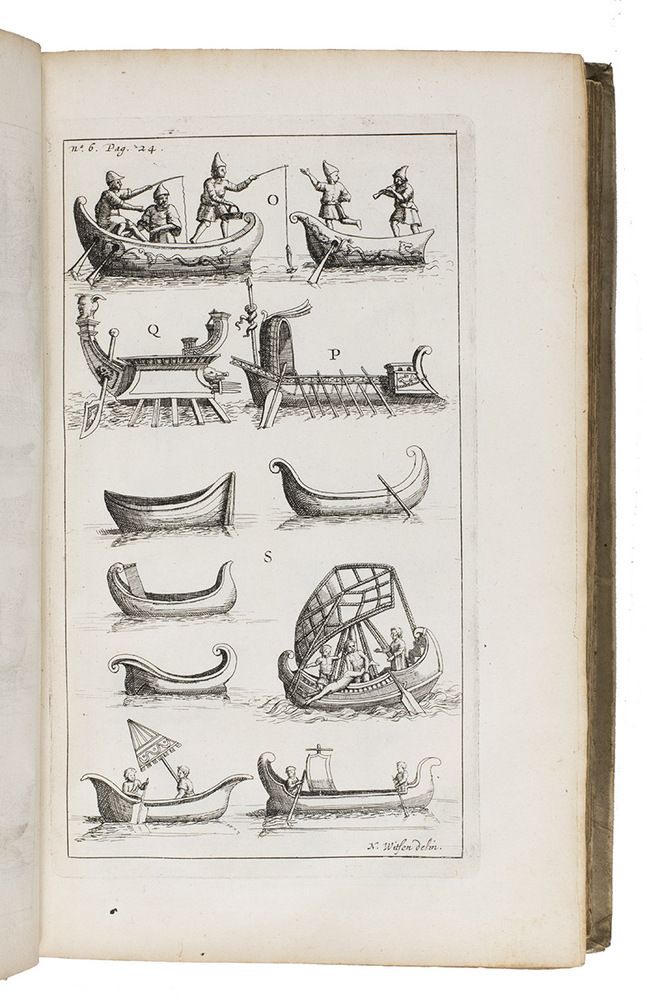 nº. 6. Pag. 24.
O
Q
P
S
N. Witsen delin.